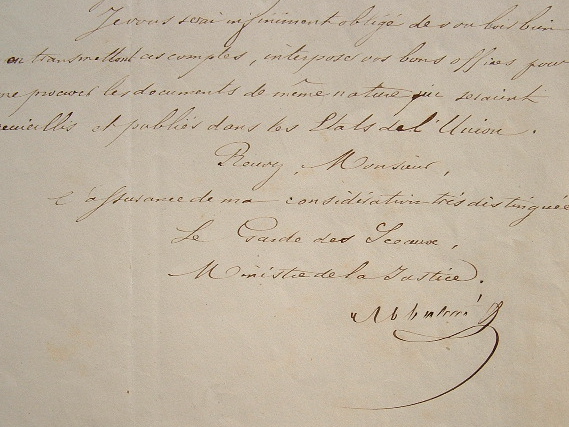 Je vous serai infiniment obligé de vouloir bien
en transmettant ces comptes, interposer vos bons offices pour
me procurer les documents de même nature qui seraient
recueillis et publiés dans les Etats de l'Union.
Recevez, Monsieur,
l'assurance de ma considération très distinguée
Le Garde des Sceaux,
Ministre de la Justice.